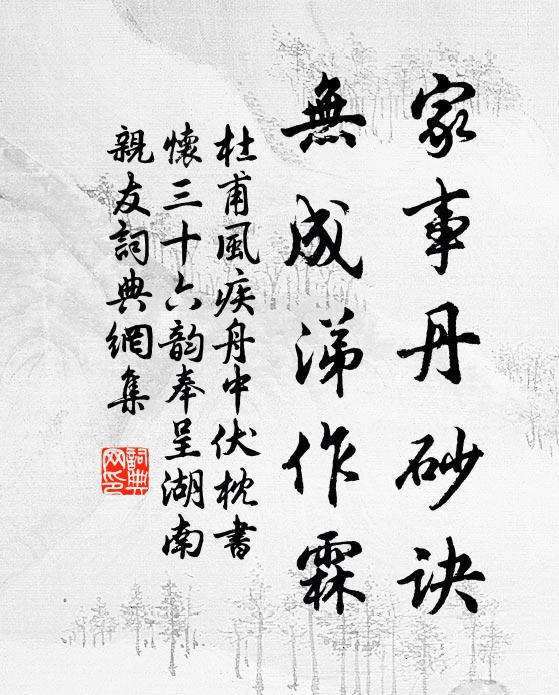 家事丹砂訣
無成涕作霖
杜甫風疾舟中伏枕書
懷三十六韵奉呈湖南
親友詞典網集
詞典网印